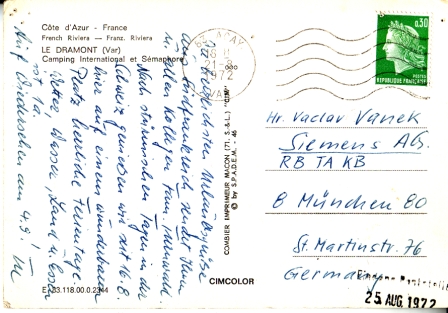 Côte d'Azur - France
French Riviera — Franz. Riviera
LE DRAMONT (Var)
Camping International et Sémaphore
AGAY
18 H
21-8
1972
VAR
0,30
REPUBLIQUE FRANÇAISE
POSTES
Die herzlichsten Urlaubsgrüsse
aus Südfrankreich sendet Ihnen
u. allen Kollegen Fam.
Nach stürmischen Tagen in der
Schweiz geniessen wir seit 16.8.
hier auf einem wunderbaren
Platz herrliche Ferientage
Wetter, Wasser, Land u. Essen
ist 1a.
Auf Wiedersehen am 4.9.!
COMBIER IMPRIMEUR MACON (71. S.-&-L.) "CIM"
© by S.P.A.D.E.M. - 46
CIMCOLOR
E. 83.118.00.0.2344
Hr. Vaclav Vanek
Siemens AG.
RB TA KB
8 München 80
St. Martinstr. 76
Germany
25. AUG. 1972